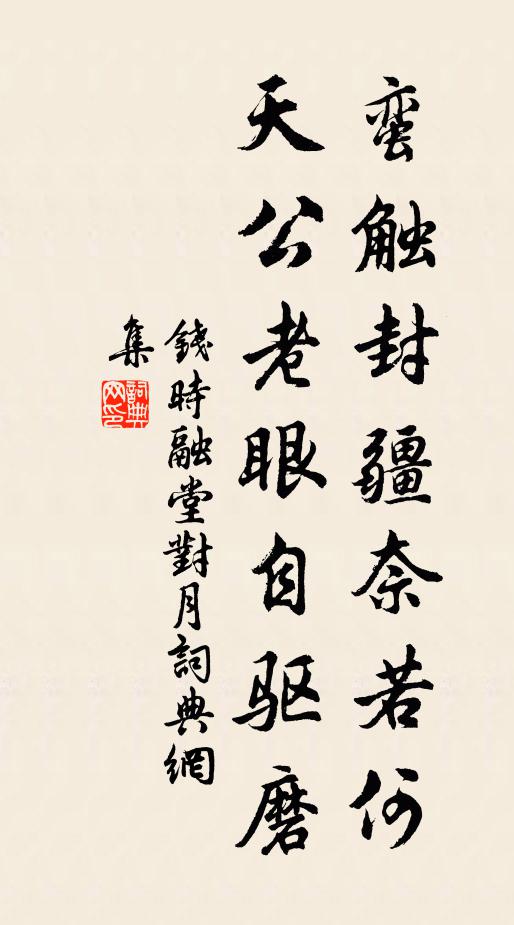 蛮触封疆奈若何
天公老眼自驱磨
錢時融堂對月詞典網
集
詞典
网印